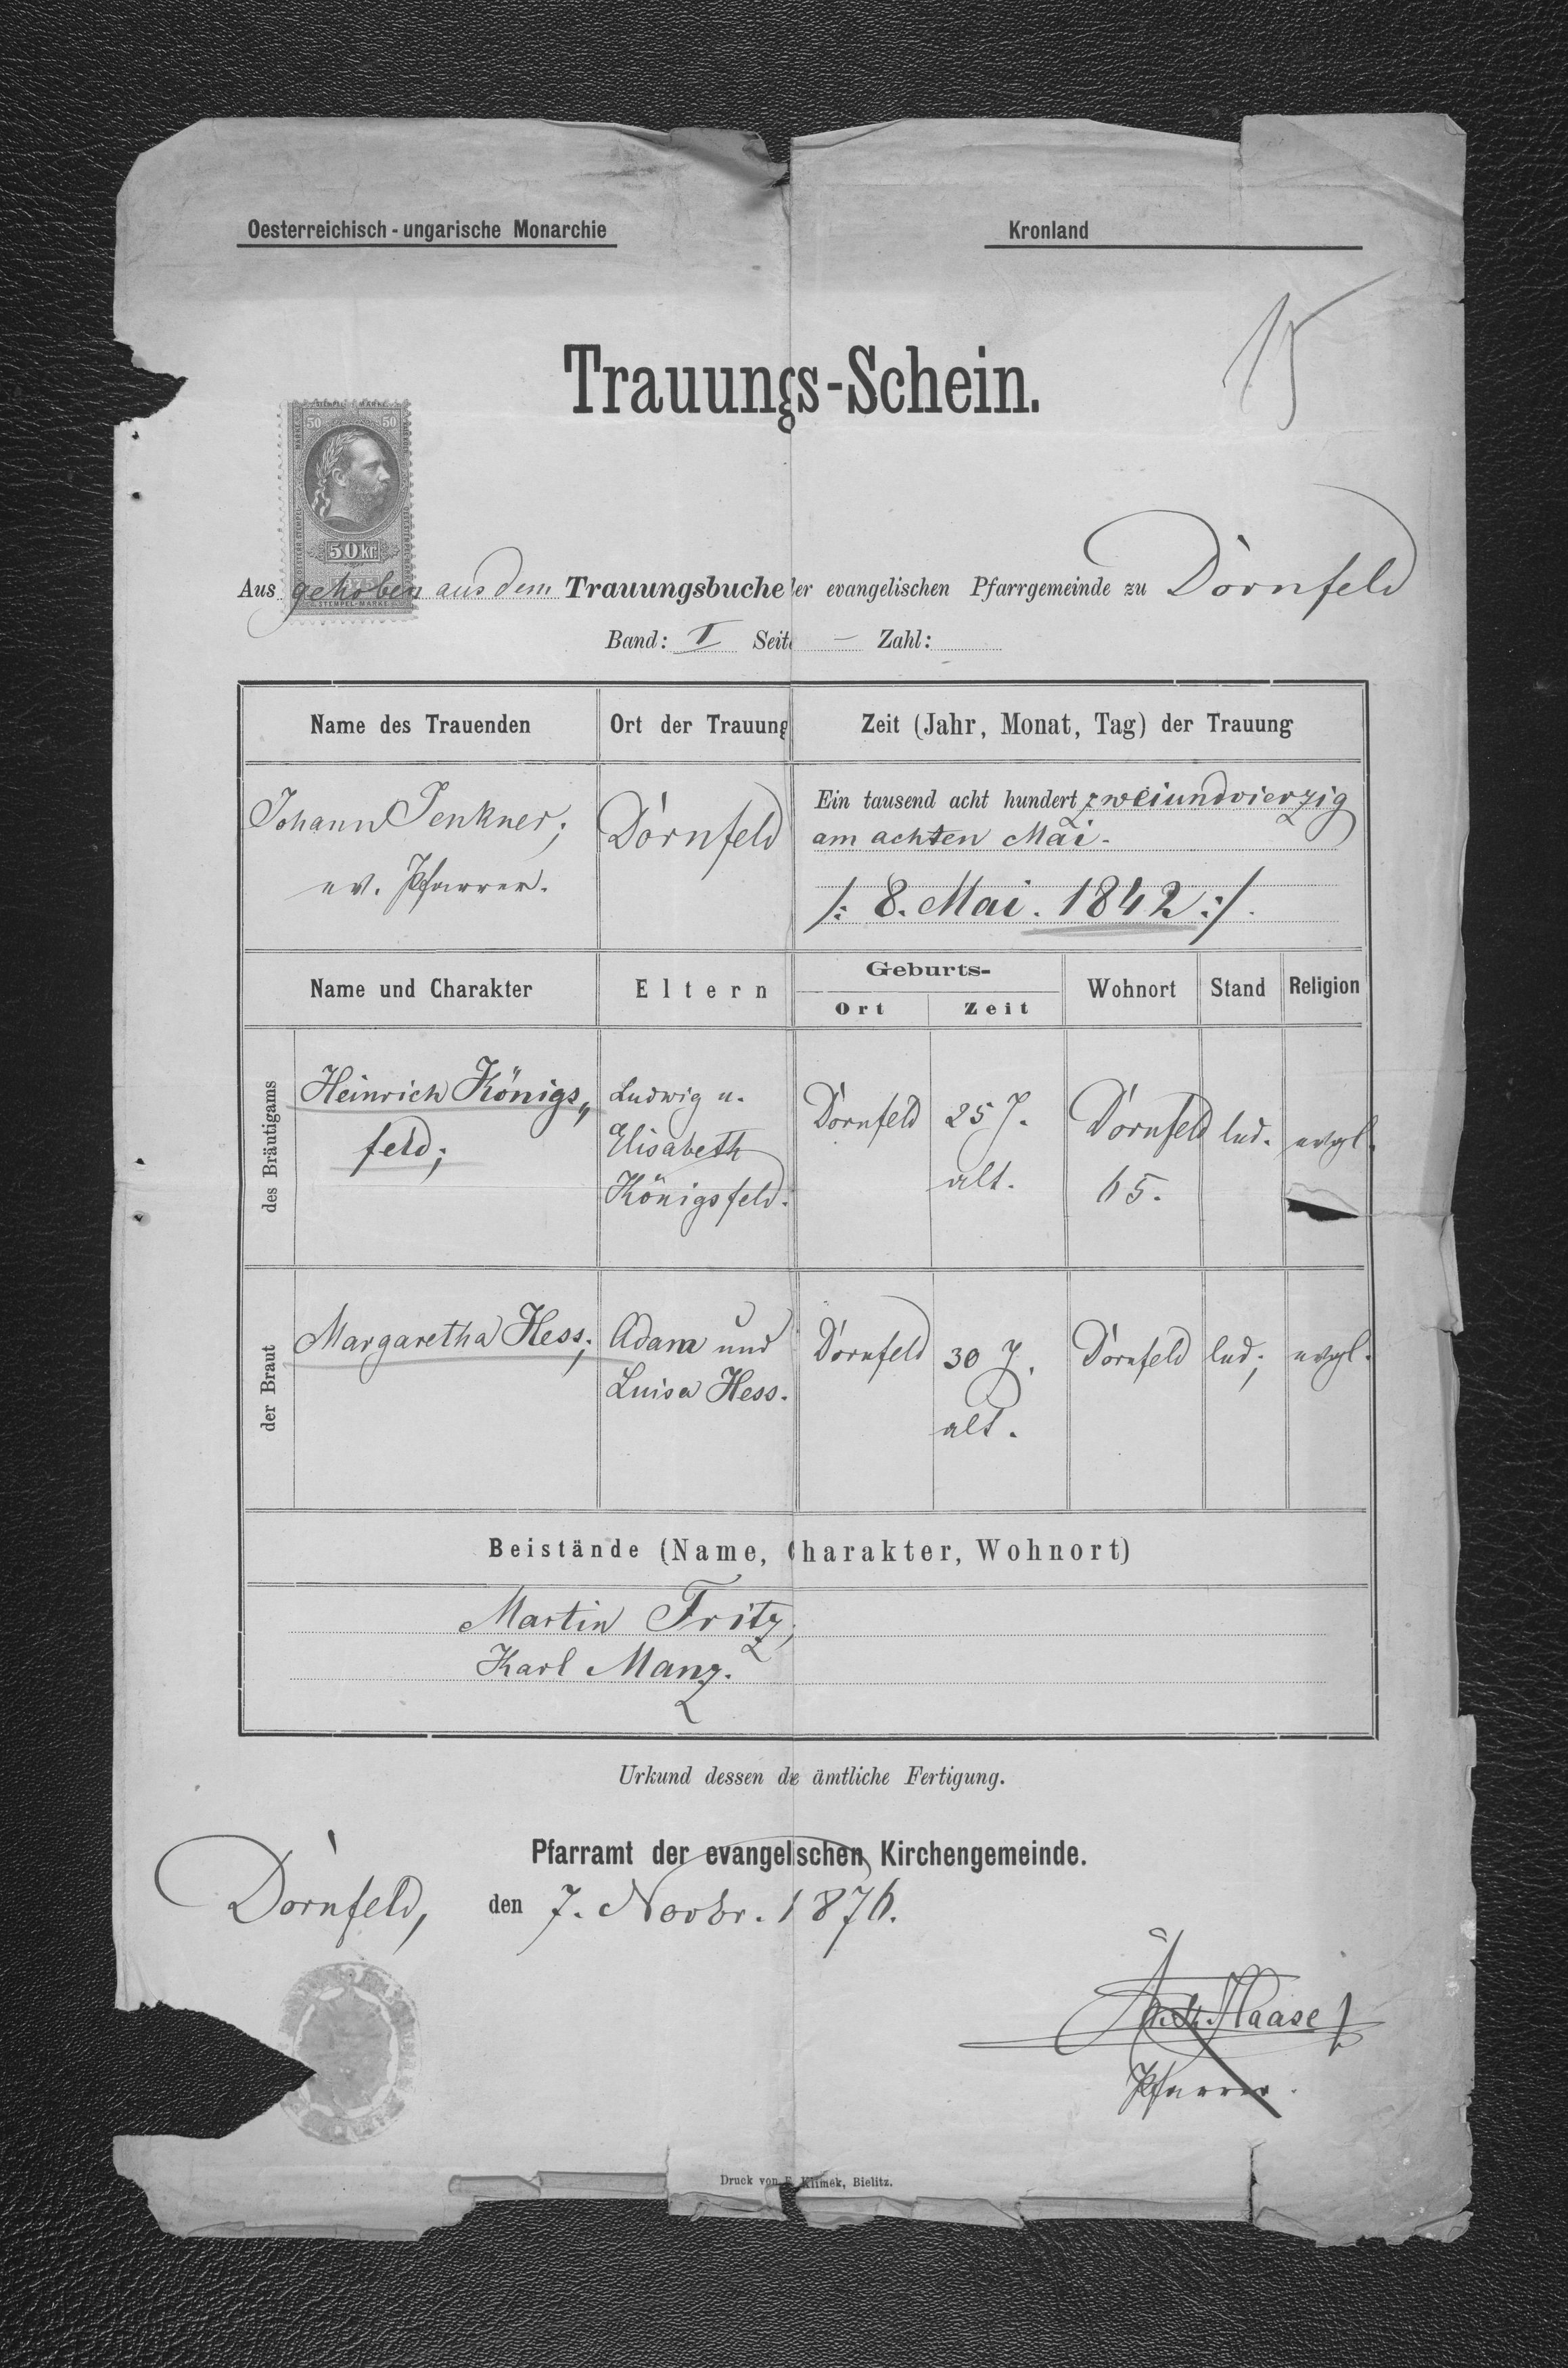 Oesterreichisch-ungarische Monarchie
Kronland
15
Trauungs-Schein.
50 50
50 kr
1875
STEMPEL-MARKE
Aus gehoben aus dem Trauungsbuche der evangelischen Pfarrgemeinde zu Dornfeld
Band: I Seite — Zahl:
Name des Trauenden Ort der Trauung Zeit (Jahr, Monat, Tag) der Trauung
Johann Penkner; Dornfeld Ein tausend acht hundert zweiundvierzig
ev. Pfarrer. am achten Mai.
/: 8. Mai. 1842 :/.
Name und Charakter Eltern Geburts- Wohnort Stand Religion
Ort Zeit
des Bräutigams
Heinrich Königs„ Ludwig u. Dornfeld 25 J. Dornfeld led. evgl.
feld; Elisabeth alt. 65.
Königsfeld.
der Braut
Margaretha Hess; Adam und Dornfeld 30 J. Dornfeld led; evgl.
Luisa Hess. alt.
Beistände (Name, Charakter, Wohnort)
Martin Fritz,
Karl Manz.
Urkund dessen die ämtliche Fertigung.
Pfarramt der evangelischen Kirchengemeinde.
Dornfeld, den 7. Novbr. 1876.
Haase
Pfarrer.
Druck von E. Klimek, Bielitz.